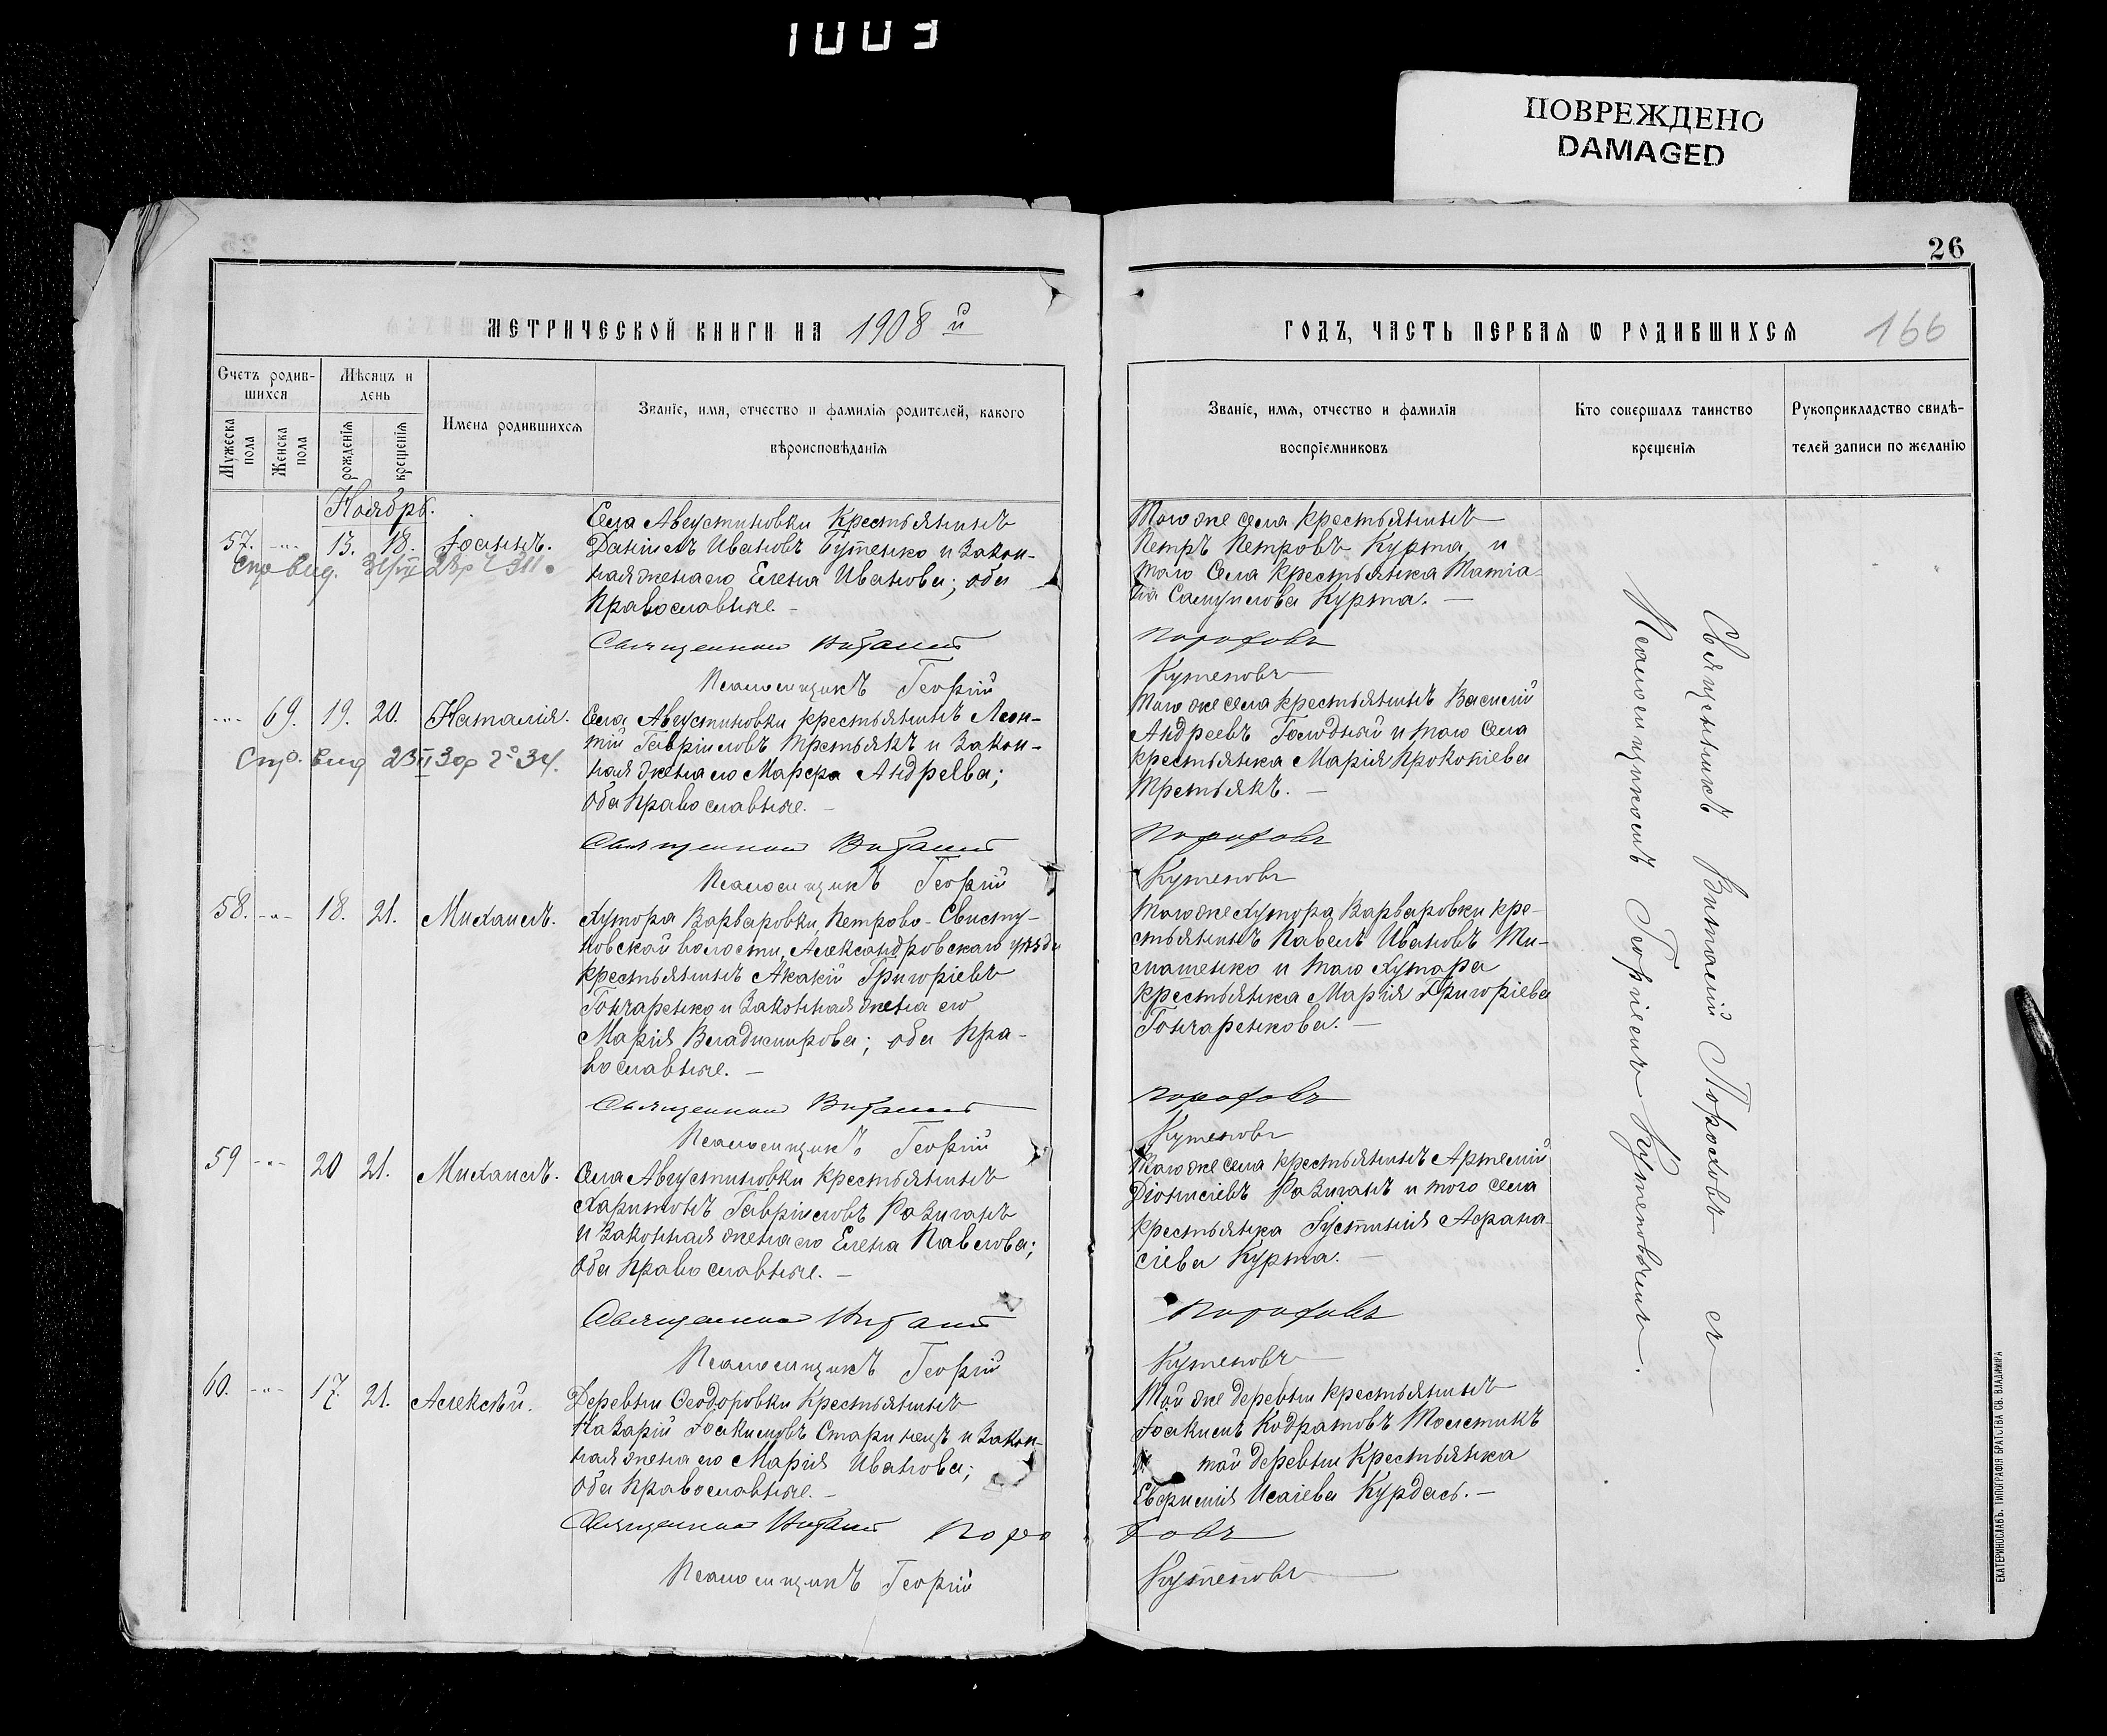 1003
ПОВРЕЖДЕНО
DAMAGED
26
МЕТРИЧЕСКОЙ КНИГИ НА 1908 й
ГОДЪ, ЧАСТЬ ПЕРВАЯ Ѡ РОДИВШИХСЯ 166
Счетъ родив-
шихся
Мужеска пола
Женска пола
Мѣсяцъ и
день
рожденія
крещенія
Имена родившихся
Званіе, имя, отчество и фамилія родителей, какого
вѣроисповѣданія
Званіе, имя, отчество и фамилія
воспріемниковъ
Кто совершалъ таинство
крещенія
Рукоприкладство свидѣ-
телей записи по желанію
Ноябрь.
57. -"- 13. 18. Іоаннъ.
Села Августиновки крестьянинъ
Даніилъ Ивановъ Бутенко и закон-
ная жена его Елена Иванова; оба
православные. -
Священникъ Виталій
Псаломщикъ Георгій
Того же села крестьянинъ
Петръ Петровъ Курта, и
того села крестьянка Татіа-
на Самуилова Курта. -
Пороховъ
Кутеповъ
-"- 69. 19. 20. Наталія.
Села Августиновки крестьянинъ Леон-
тій Гавріиловъ Третьякъ и закон-
ная жена его Марфа Андреева;
оба православные. -
Священникъ Виталій
Псаломщикъ Георгій
Того же села крестьянинъ Василій
Андреевъ Голодный и того села
крестьянка Марія Прокопіева
Третьякъ. -
Пороховъ
Кутеповъ
58. -"- 18. 21. Михаилъ.
Хутора Варваровки, Петрово-Свисту-
новской волости, Александровскаго уѣзда
крестьянинъ Акакій Григоріевъ
Гончаренко и законная жена его
Марія Владимирова; оба пра-
вославные. -
Священникъ Виталій
Псаломщикъ Георгій
Того же хутора Варваровки кре-
стьянинъ Павелъ Ивановъ
и того хутора
крестьянка Марія Григоріева
Гончаренкова. -
Пороховъ
Кутеповъ
59 -"- 20 21. Михаилъ.
Села Августиновки крестьянинъ
Харитонъ Гавріиловъ Разиганъ
и законная жена его Елена Павлова;
оба православные. -
Священникъ Виталій
Псаломщикъ Георгій
Того же села крестьянинъ Артемій
Діонисіевъ Разиганъ и того села
крестьянка Іустинія Афана-
сіева Курта. -
Пороховъ
Кутеповъ
60. -"- 17. 21. Алексѣй.
Деревни Ѳеодоровки крестьянинъ
Назарій Іоакимовъ Старинецъ и закон-
ная жена его Марія Иванова;
оба православные. -
Священникъ Виталій Поро
Псаломщикъ Георгій
Той же деревни крестьянинъ
Іоакимъ Кодратовъ Толстикъ
и той деревни крестьянка
Евфимія Исаіева Курдась. -
ховъ
Кутеповъ
Священникъ Виталій Пороховъ съ
Псаломщикомъ Георгіемъ Кутеповымъ.
ЕКАТЕРИНОСЛАВЪ. ТИПОГРАФІЯ БРАТСТВА СВ. ВЛАДИМІРА